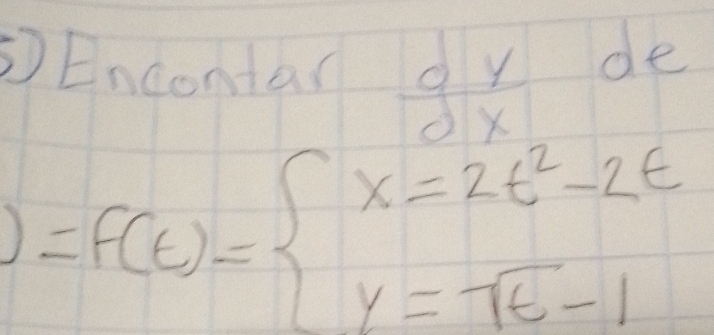 5) Encontar dy/dx de
) = f(t) = { x = 2t² - 2t
y = √t - 1